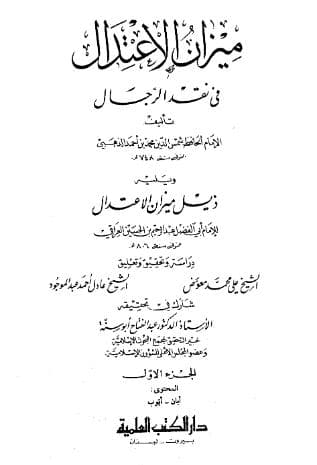 ميزان الاعتدال
في نقد الرجال
تأليف
الإمام الحافظ شمس الدين محمد بن أحمد الذهبي
المتوفى سنة ٧٤٨ هـ
ويليه
ذيل ميزان الاعتدال
للإمام أبي الفضل عبد الرحيم بن الحسين العراقي
المتوفى سنة ٨٠٦ هـ
دراسة وتحقيق وتعليق
الشيخ علي محمد معوض الشيخ عادل أحمد عبد الموجود
شارك في تحقيقه
الأستاذ الدكتور عبد الفتاح أبو سنة
خبير التحقيق بمجمع البحوث الإسلامية
وعضو المجلس الأعلى للشئون الإسلامية
الجزء الأول
المحتوى:
أبان - أيوب
دار الكتب العلمية
بيروت - لبنان